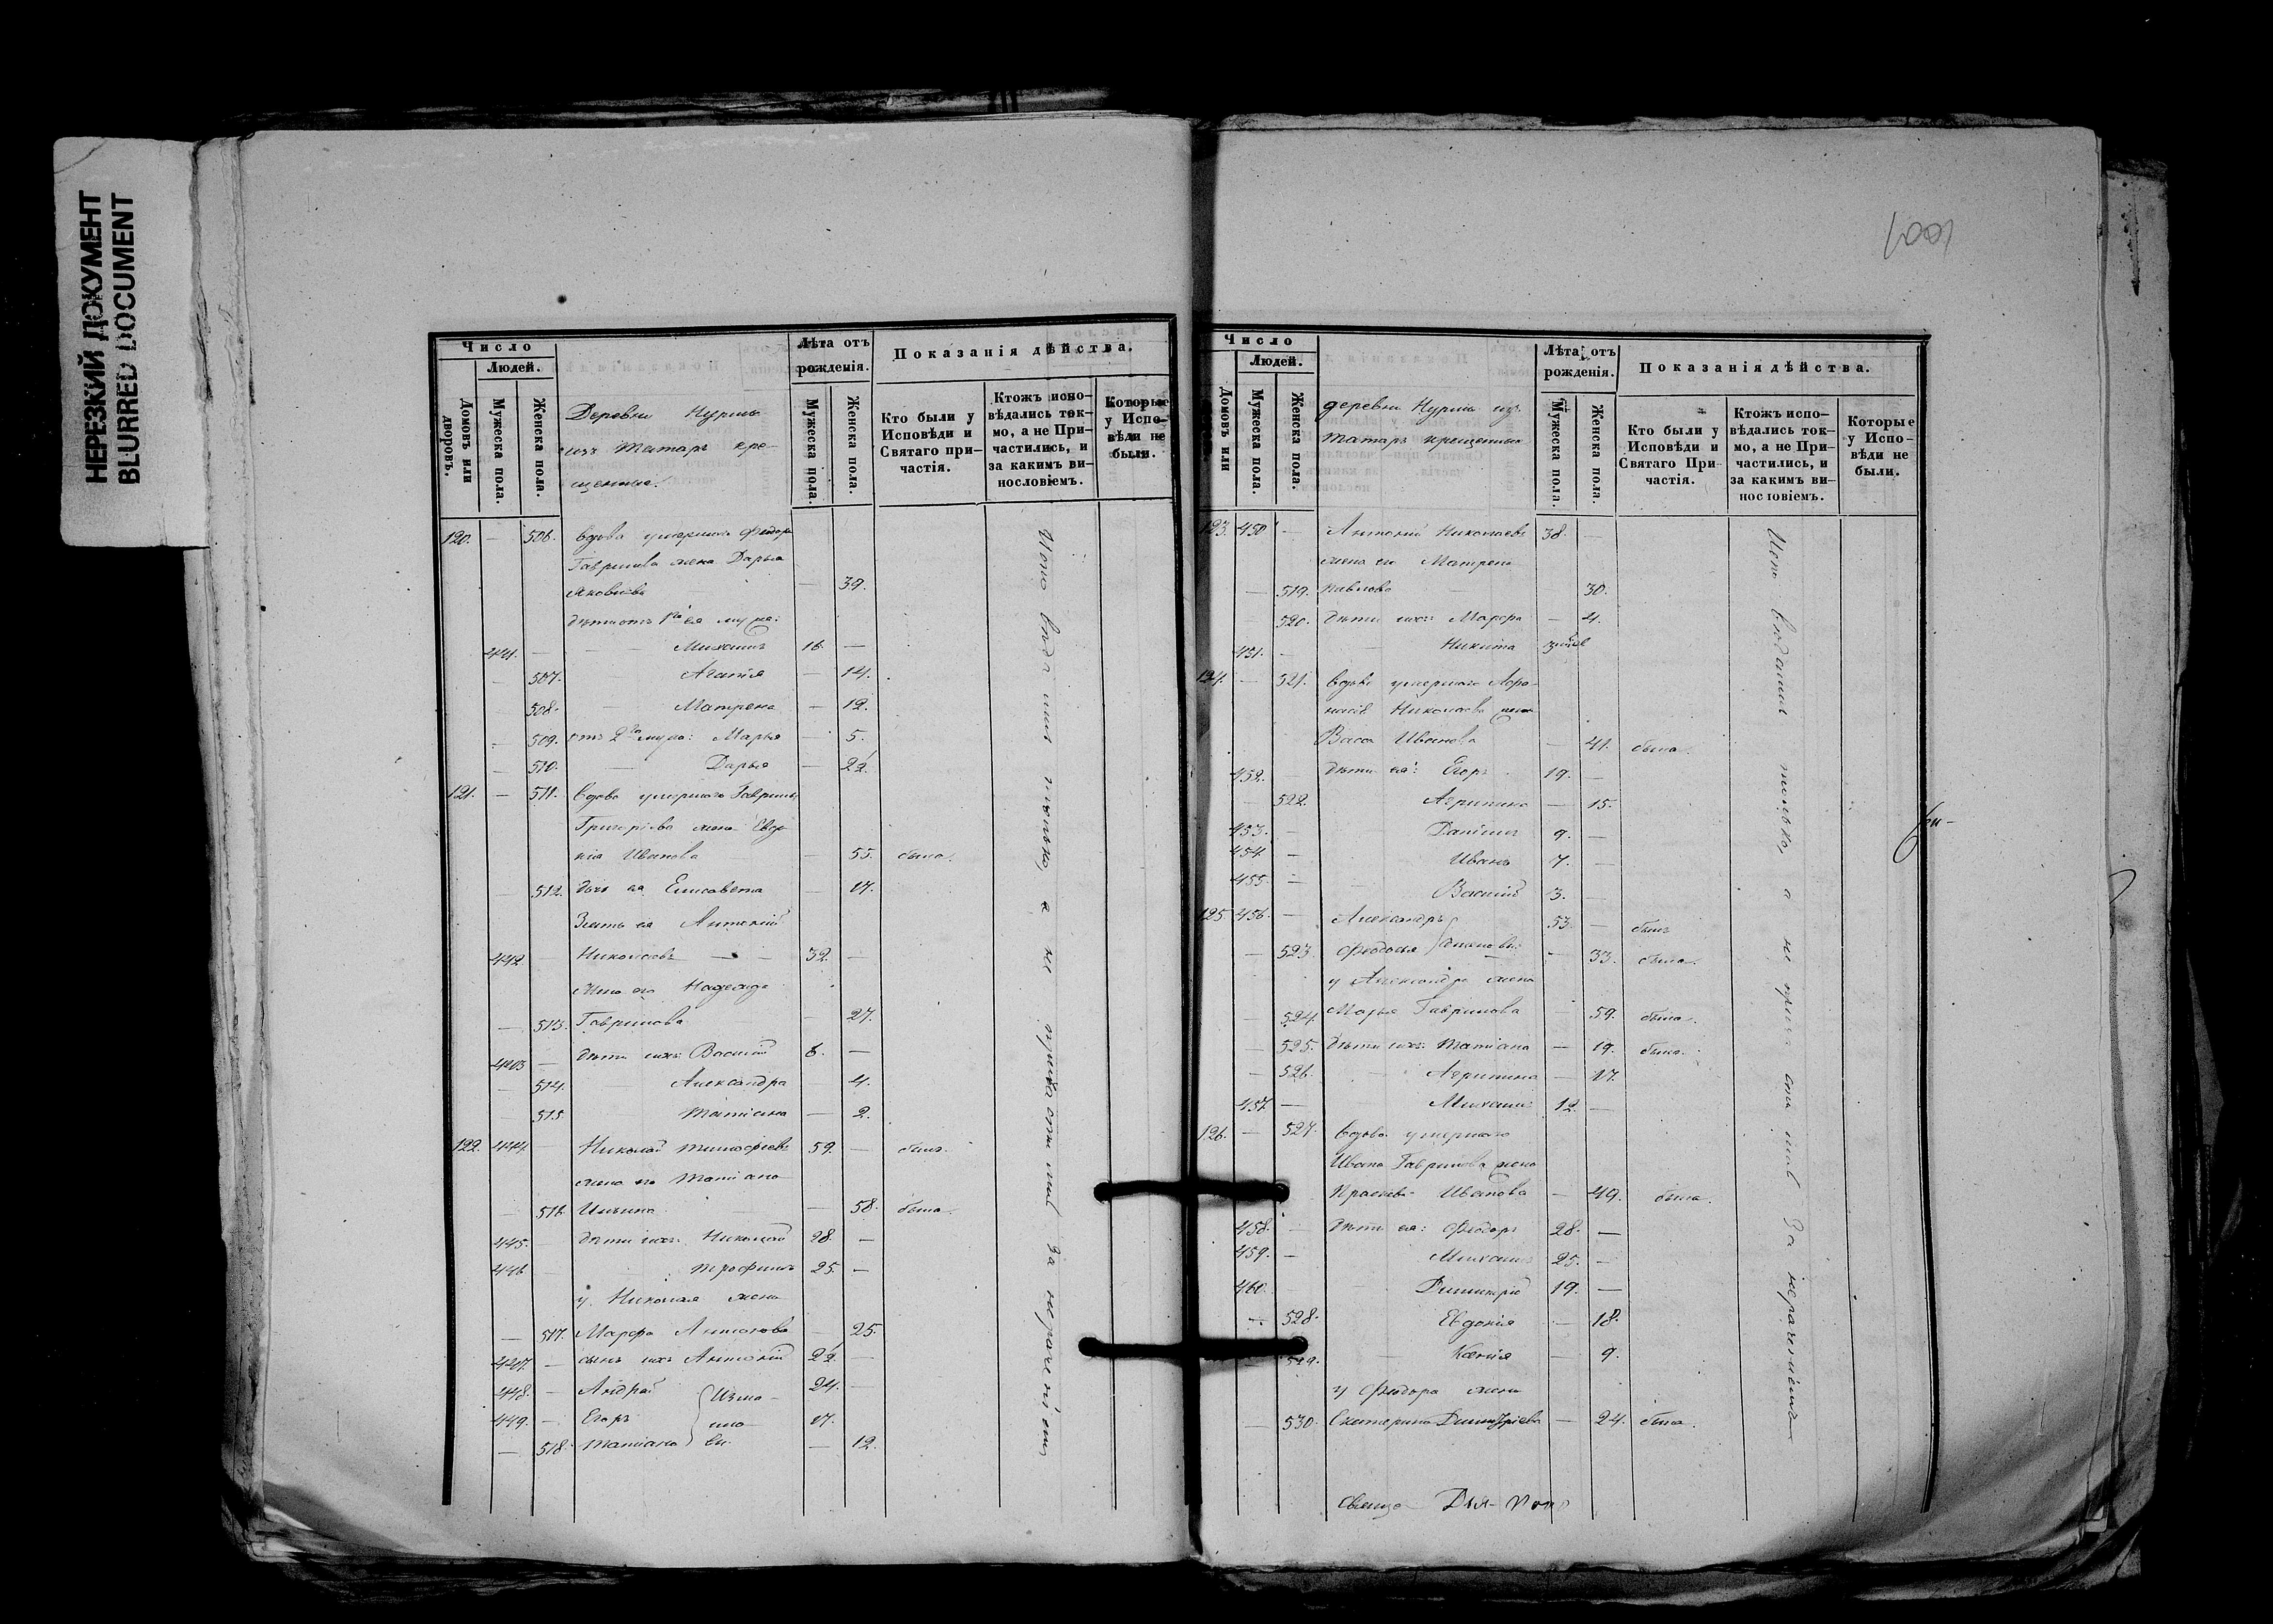 НЕРЕЗКИЙ ДОКУМЕНТ
BLURRED DOCUMENT
Число
Людей.
Домовъ или дворовъ.
Мужеска пола.
Женска пола.
Деревни Нурмы
изъ татаръ кре-
щеныхъ.
Лѣта отъ рожденія.
Мужеска пола.
Женска пола.
Показанія дѣйства.
Кто были у Исповѣди и Святаго при-частія.
Ктожъ испо-вѣдались ток-мо, а не При-частились, и за какимъ ви-нословіемъ.
Которые у Испо-вѣди не были.
120. — 506. вдова умершаго Федора
Гаврилова жена Дарья
Яковлева — 39.
дѣти отъ 1го ея мужа:
441. — Михаилъ 16. —
— 507. Агапія — 14.
— 508. Матрена — 12.
— 509. отъ 2го мужа: Марья — 5.
— 510. Дарья — 2½
121. — 511. вдова умершаго Гаврилы
Григорьева жена Евдо-
кія Иванова — 55. была.
— 512. дочь ея Елисавета — 17.
Зять ея Антоній
442. Николаевъ — 32. —
жена его Надежда
— 513. Гаврилова — 27.
443 — дѣти ихъ: Василій 6. —
— 514. Александра — 4.
— 515 Татіана — 2.
122. 444. Николай Тимофеевъ 59. — былъ.
жена его Татіана
— 516. — 58. была.
445. дѣти ихъ: Николай 28. —
446 Трофимъ 25. —
у Николая жена
— 517. Марфа Антонова — 25.
447. — сынъ ихъ Антоній 2½ —
448. — Андрей 24. —
449. — Егоръ 17.
— 518. Татіана — 12.
Исповѣдались только, а не причастились за нераченіемъ
Число
Людей.
Домовъ или
Мужеска пола.
Женска пола.
деревни Нурмы изъ
татаръ крещеныхъ
Лѣта отъ рожденія.
Мужеска пола
Женска пола.
Показанія дѣйства.
Кто были у Исповѣди и Святаго При-частія.
Ктожъ испо-вѣдались ток-мо, а не При-частились, и за какимъ ви-нословіемъ.
Которые у Испо-вѣди не были.
123. 450 — Антоній Николаевъ 38. —
жена его Матрена
— 519. Павлова 30.
— 520. дѣти ихъ: Марфа — 4.
451. — Никита
124. — 521. вдова умершаго Афа-
насія Николаева жена
Васса Иванова — 41. была.
452. дѣти ея: Егоръ 19. —
— 522. Агрипина — 15.
453. — Даніилъ 9. —
454 — Иванъ 7. —
455. — Василій 3. —
125 456. — Александръ 53. — былъ
— 523. Феодосья — 33. была.
у Александра жена
— 524. Марья Гаврилова — 59. была.
— 525. дѣти ихъ: Татіана — 19. была.
— 526. Агрипина — 17.
457. — Михаилъ 12. —
126. — 527. вдова умершаго
Ивана Гаврилова жена
Прасковья Иванова — 49. была.
458. дѣти ея: Феодоръ 28. —
459. — Михаилъ 25. —
460. Димитрій 19. —
— 528. Евдокія — 18.
529. Ксенія — 9.
у Феодора жена
— 530. Екатерина Димитріева — 24. была.
Исповѣдались только, а не причастились за нераченіемъ